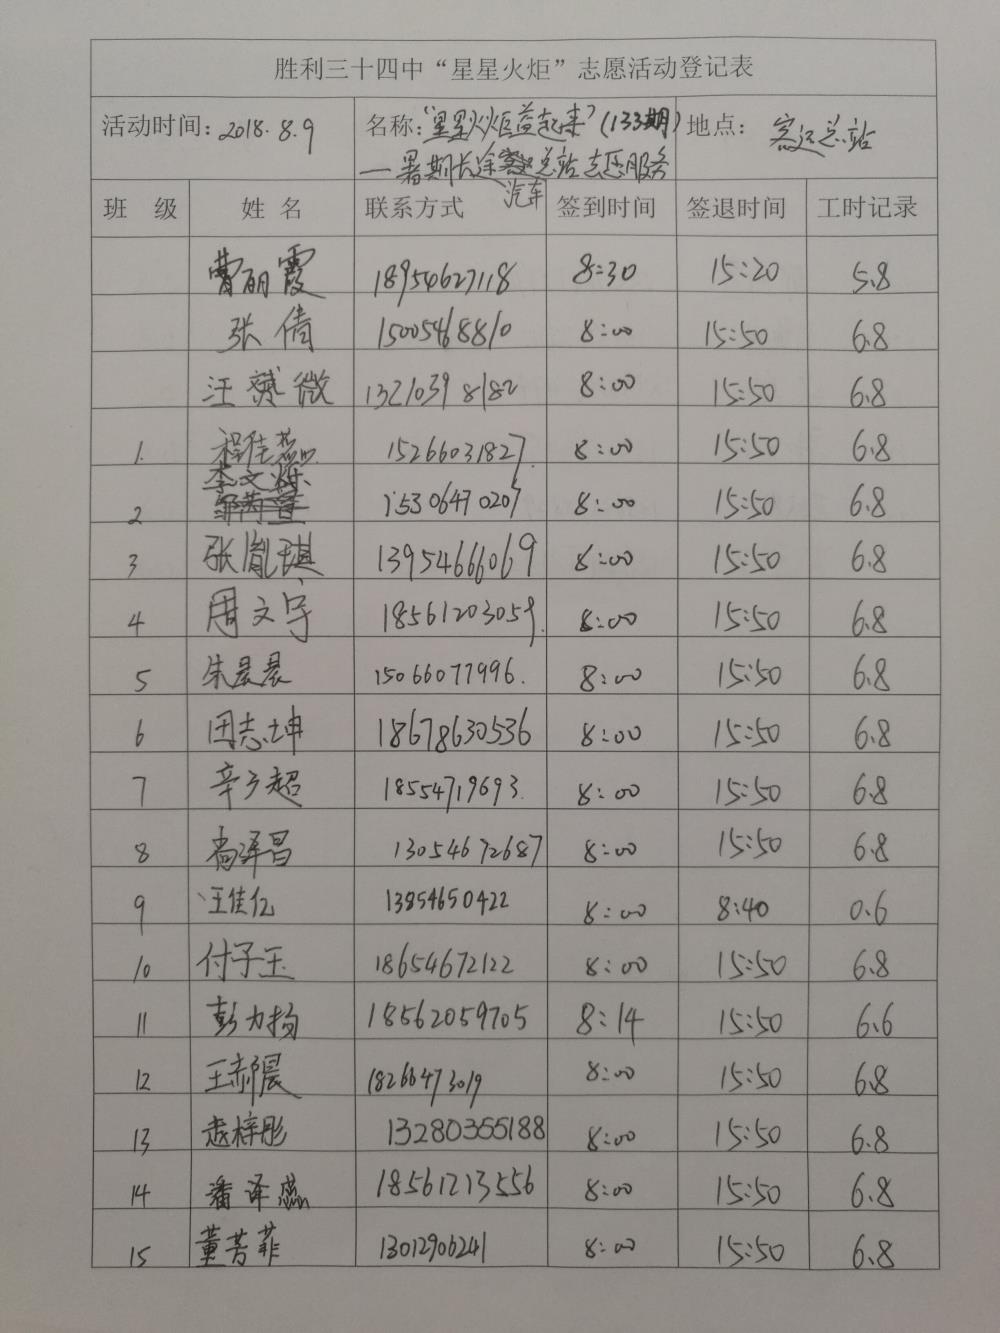 胜利三十四中“星星火炬”志愿活动登记表
活动时间：2018.8.9 名称：“星星火炬益起来”（133期） 地点：客运总站
—暑期长途汽车总站志愿服务
班 级 姓 名 联系方式 签到时间 签退时间 工时记录
曹丽霞 18954627118 8:30 15:20 5.8
张倩 15005468810 8:00 15:50 6.8
汪赟微 13210398182 8:00 15:50 6.8
1. 程佳蕊 15266031827. 8:00 15:50 6.8
2 李文烁 15306470207 8:00 15:50 6.8
3 张胤琪 13954666069 8:00 15:50 6.8
4 周文宇 18561203059. 8:00 15:50 6.8
5 朱晨晨 15066077996. 8:00 15:50 6.8
6 田志坤 18678630536 8:00 15:50 6.8
7 辛子超 18554719693. 8:00 15:50 6.8
8 尚泽昌 13054672687 8:00 15:50 6.8
9 汪佳亿 13854650422 8:00 8:40 0.6
10 付子玉 18654672122 8:00 15:50 6.8
11 彭力扬 18562059705 8:14 15:50 6.6
12 王郝晨 18266473019 8:00 15:50 6.8
13 赵梓彤 13280355188 8:00 15:50 6.8
14 潘译蕊 18561213556 8:00 15:50 6.8
15 董芳菲 13012906241 8:00 15:50 6.8